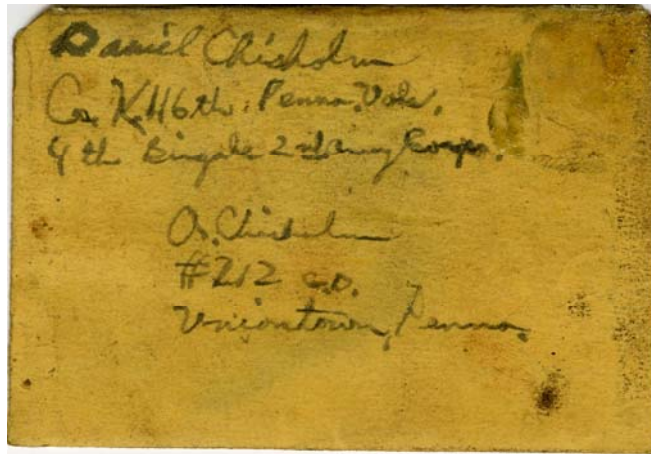 Daniel Chisholm
Co. K, 116th, Penna. Vols.
4th Brigade 2nd Army Corps.
A. Chisholm
#212 C.D.
Uniontown, Penna.